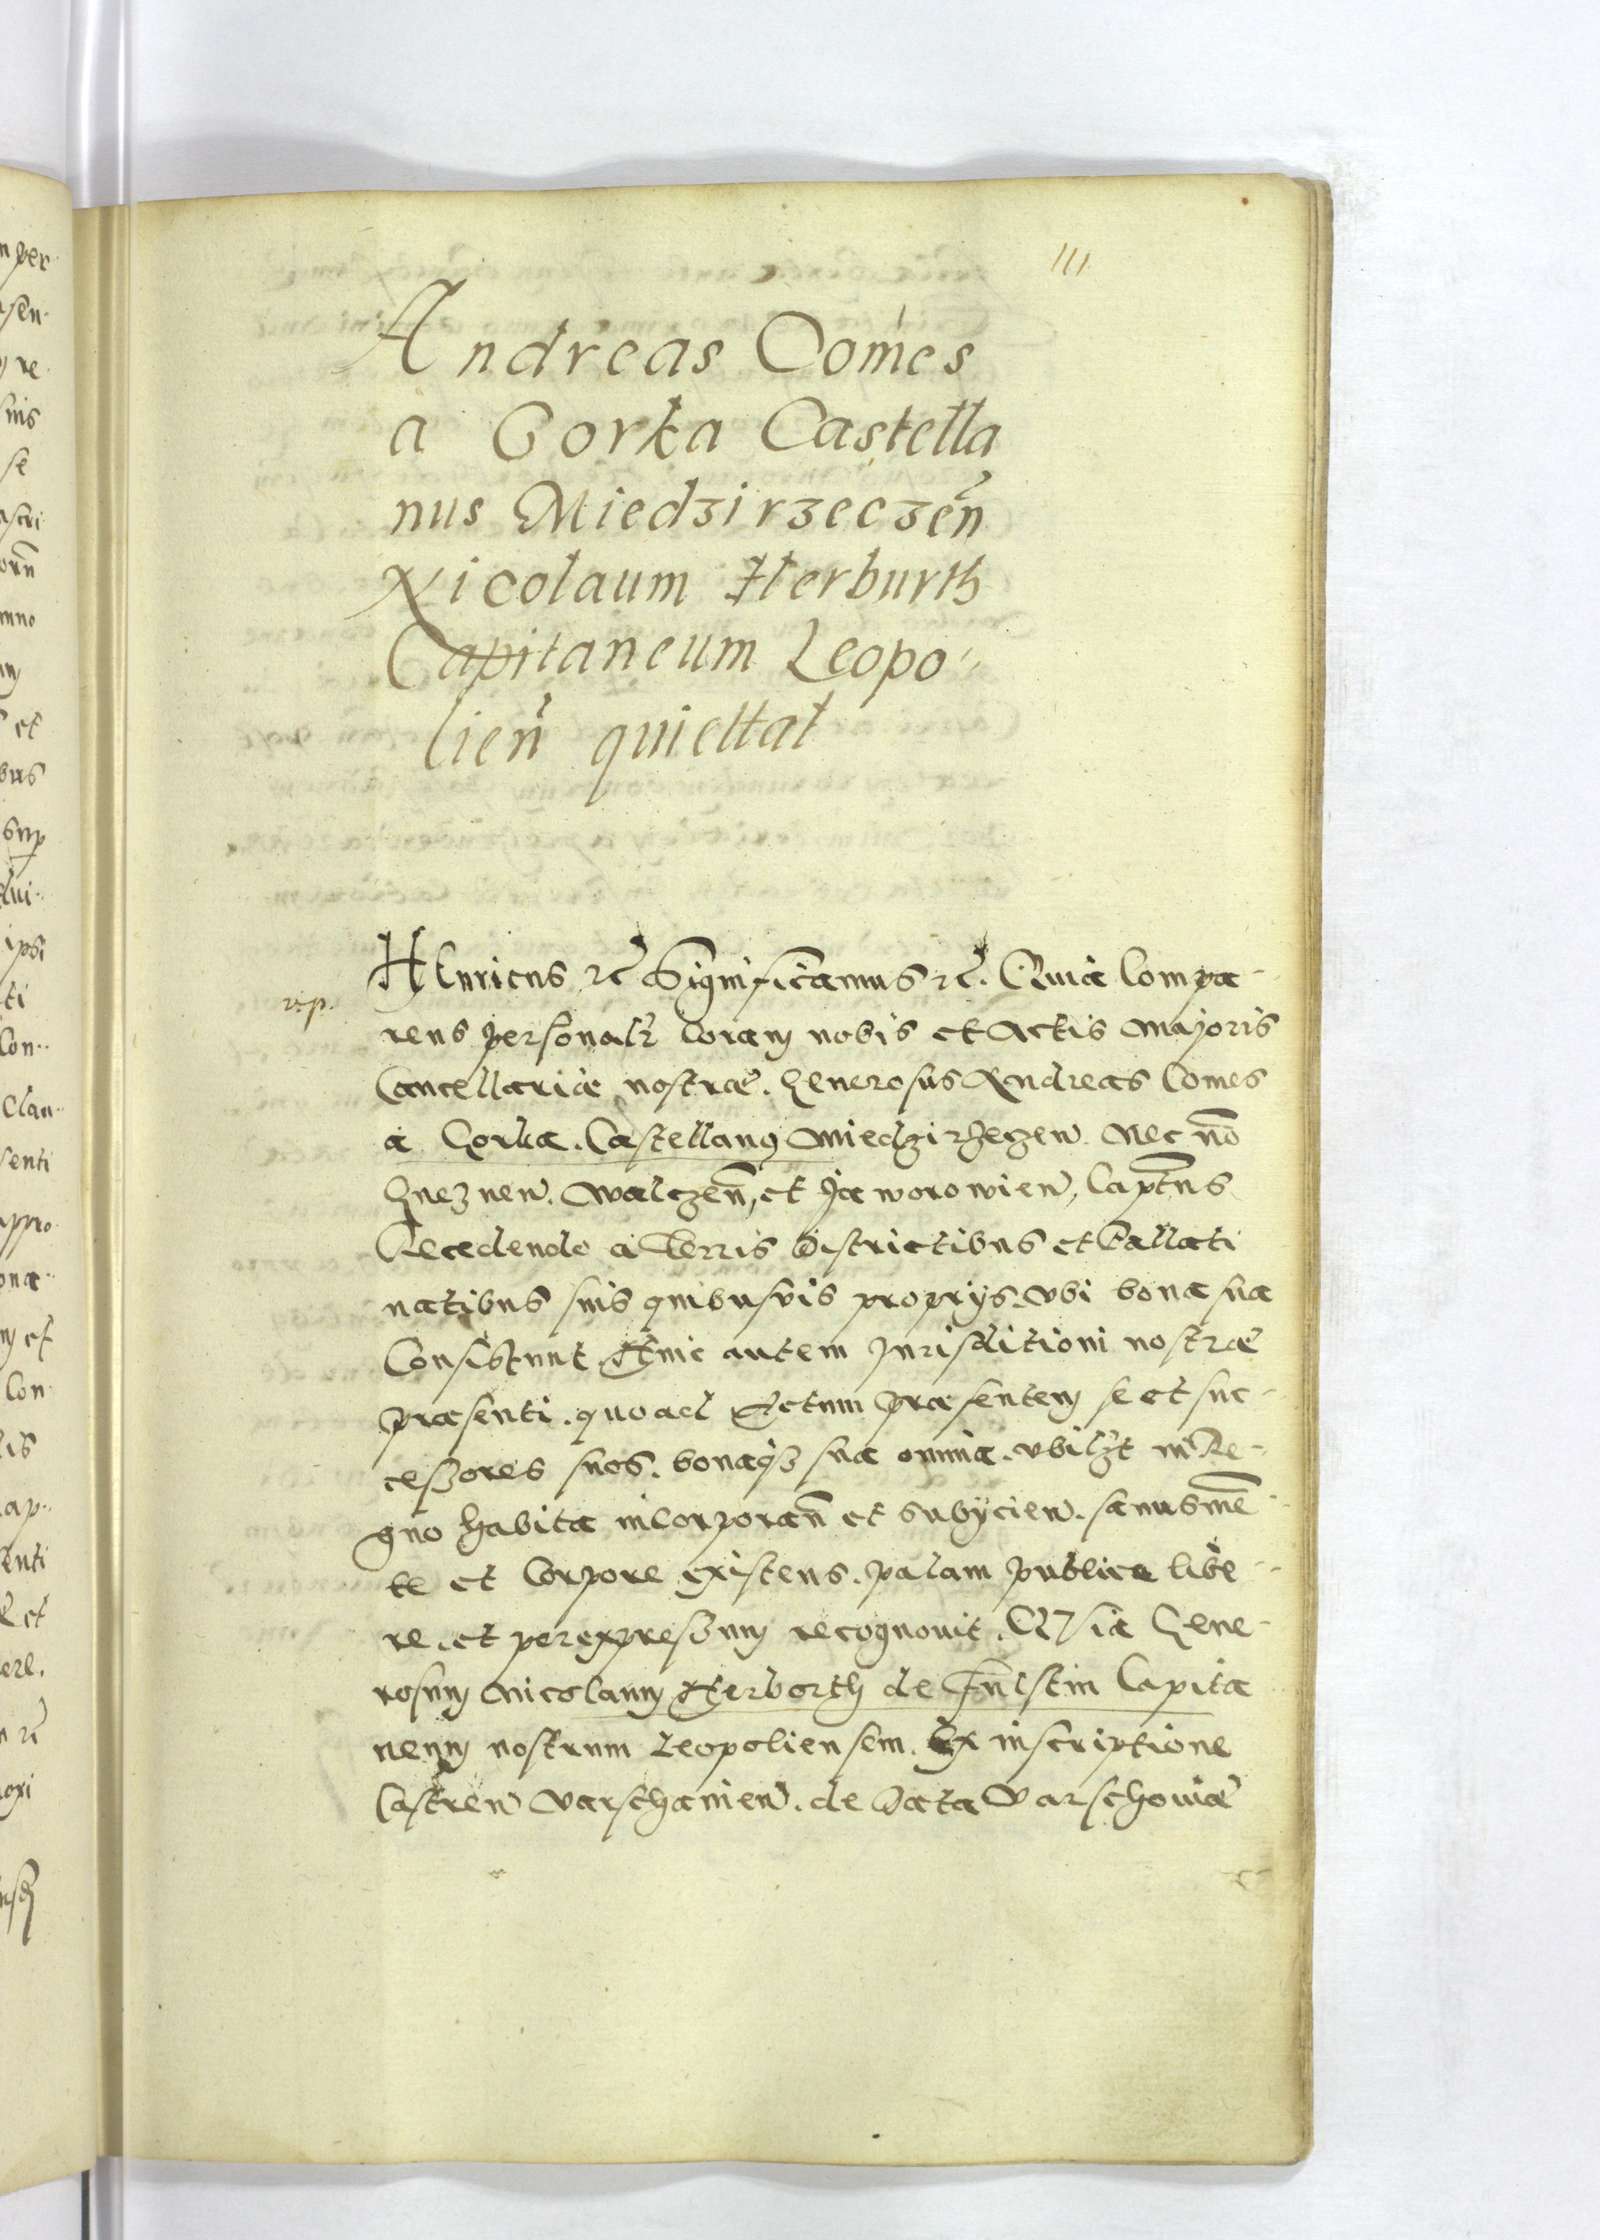 111
Andreas Comes
a Gorka Castella
nus Miedzirzeczen̄
Nicolaum Herburth
Capitaneum Leopo-
lien̄ quiettat
rxp.
HEnricus etc̄ Significamus etc̄. Quia Compa-
rens personalr̄ Coram nobis et Actis Majoris
Cancellariæ nostræ. Generosus Andreas Comes
a Gorka. Castellanus Miedzirzeczen̄. Nec nō
Gneznen̄. Walczen̄, et Jaworowien̄, Captn̄s
Recedendo a Terris Districtibus et Pallati
natibus suis quibusvis proprijs. Vbi bona sua
Consistunt. Huic autem Jurisditioni nostræ
præsenti. quo ad Actum præsentem se et suc-
ceszores suos. bonaqz sua omnia. vbilzt in Re-
gno habita incorporan̄ et subijcien̄. sanus mē
te et Corpore existens. palam publice libe-
re. et per expreszum recognovit. QVia Gene-
rosum Nicolaum Herborth de Fulstin Capita
neum nostrum Leopoliensem. Ex inscriptione
Castren̄ Varschavien̄. de Data Varschoviæ